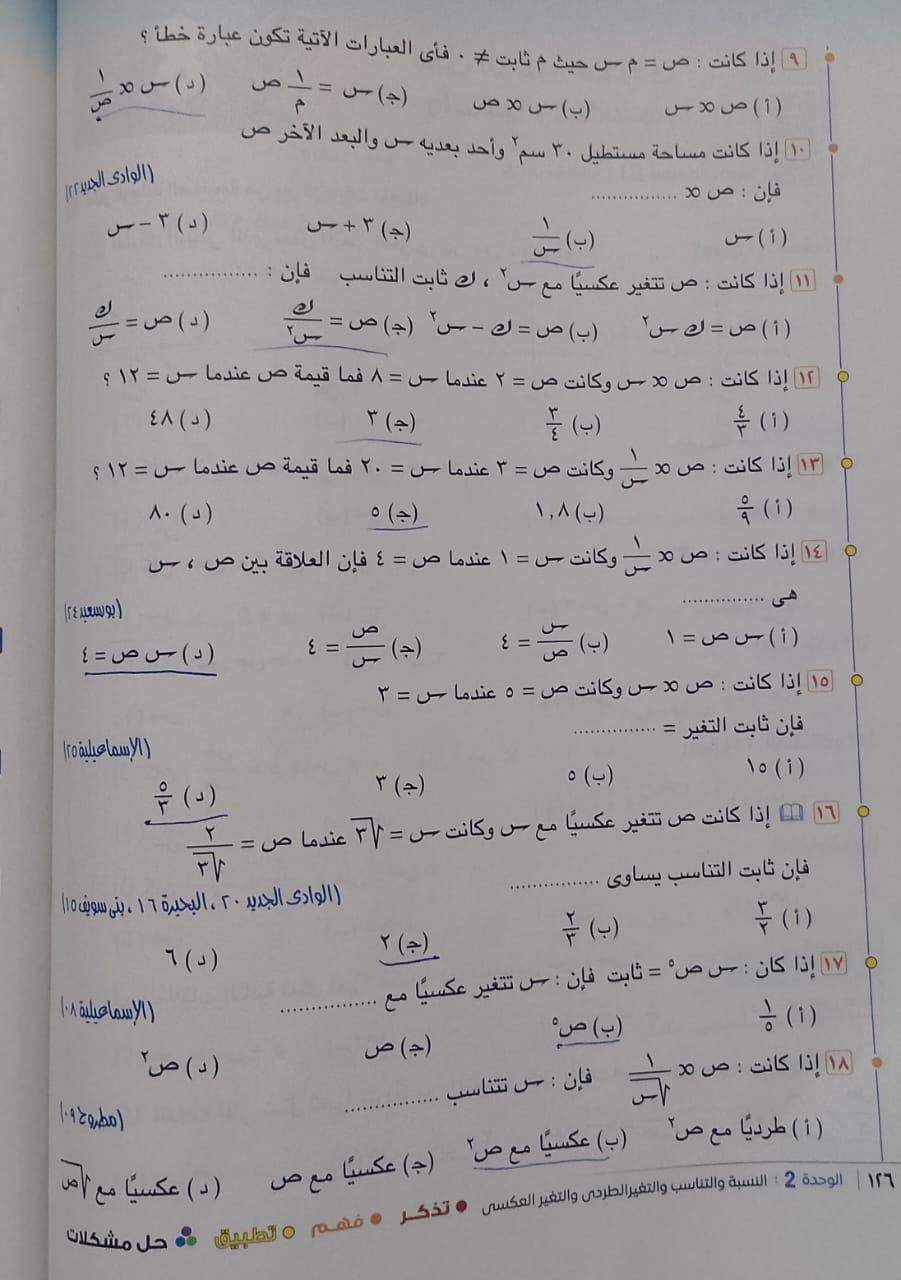 ٩ إذا كانت : ص = م س حيث م ثابت ≠ ٠ فأى العبارات الآتية تكون عبارة خطأ ؟
(أ) ص ∝ س (ب) س ∝ ص (جـ) س = ١/م ص (د) س ∝ ١/ص
١٠ إذا كانت مساحة مستطيل ٣٠ سم٢ وأحد بعديه س والبعد الآخر ص
فإن : ص ∝ ................ (الوادى الجديد ٢٢)
(أ) س (ب) ١/س (جـ) س + ٣ (د) س − ٣
١١ إذا كانت : ص تتغير عكسيًا مع س٢ ، ك ثابت التناسب فإن : ................
(أ) ص = ك س٢ (ب) ص = ك − س٢ (جـ) ص = ك/س٢ (د) ص = ك/س
١٢ إذا كانت : ص ∝ س وكانت ص = ٢ عندما س = ٨ فما قيمة ص عندما س = ١٢ ؟
(أ) ٤/٣ (ب) ٣/٤ (جـ) ٣ (د) ٤٨
١٣ إذا كانت : ص ∝ ١/س وكانت ص = ٣ عندما س = ٢٠ فما قيمة ص عندما س = ١٢ ؟
(أ) ٥/٩ (ب) ١,٨ (جـ) ٥ (د) ٨٠
١٤ إذا كانت : ص ∝ ١/س وكانت س = ١ عندما ص = ٤ فإن العلاقة بين ص ، س
هى ................ (بورسعيد ٢٤)
(أ) س ص = ١ (ب) س/ص = ٤ (جـ) ص/س = ٤ (د) س ص = ٤
١٥ إذا كانت : ص ∝ س وكانت ص = ٥ عندما س = ٣
فإن ثابت التغير = ................ (الإسماعيلية ٢٥)
(أ) ١٥ (ب) ٥ (جـ) ٣ (د) ٥/٣
١٦ إذا كانت ص تتغير عكسيًا مع س وكانت س = √٣ عندما ص = ٢/√٣
فإن ثابت التناسب يساوى ................ (الوادى الجديد ٢٠ ، البحيرة ١٦ ، بنى سويف ١٥)
(أ) ٣/٢ (ب) ٢/٣ (جـ) ٢ (د) ٦
١٧ إذا كان : س ص٥ = ثابت فإن : س تتغير عكسيًا مع ................ (الإسماعيلية ٠٨)
(أ) ١/٥ (ب) ص٥ (جـ) ص (د) ص٢
١٨ إذا كانت : ص ∝ ١/√س فإن : س تتناسب ................ (مطروح ٠٩)
(أ) طرديًا مع ص٢ (ب) عكسيًا مع ص٢ (جـ) عكسيًا مع ص (د) عكسيًا مع √ص
١٢٦ | الوحدة 2 : النسبة والتناسب والتغير الطردى والتغير العكسى
تذكر فهم تطبيق حل مشكلات